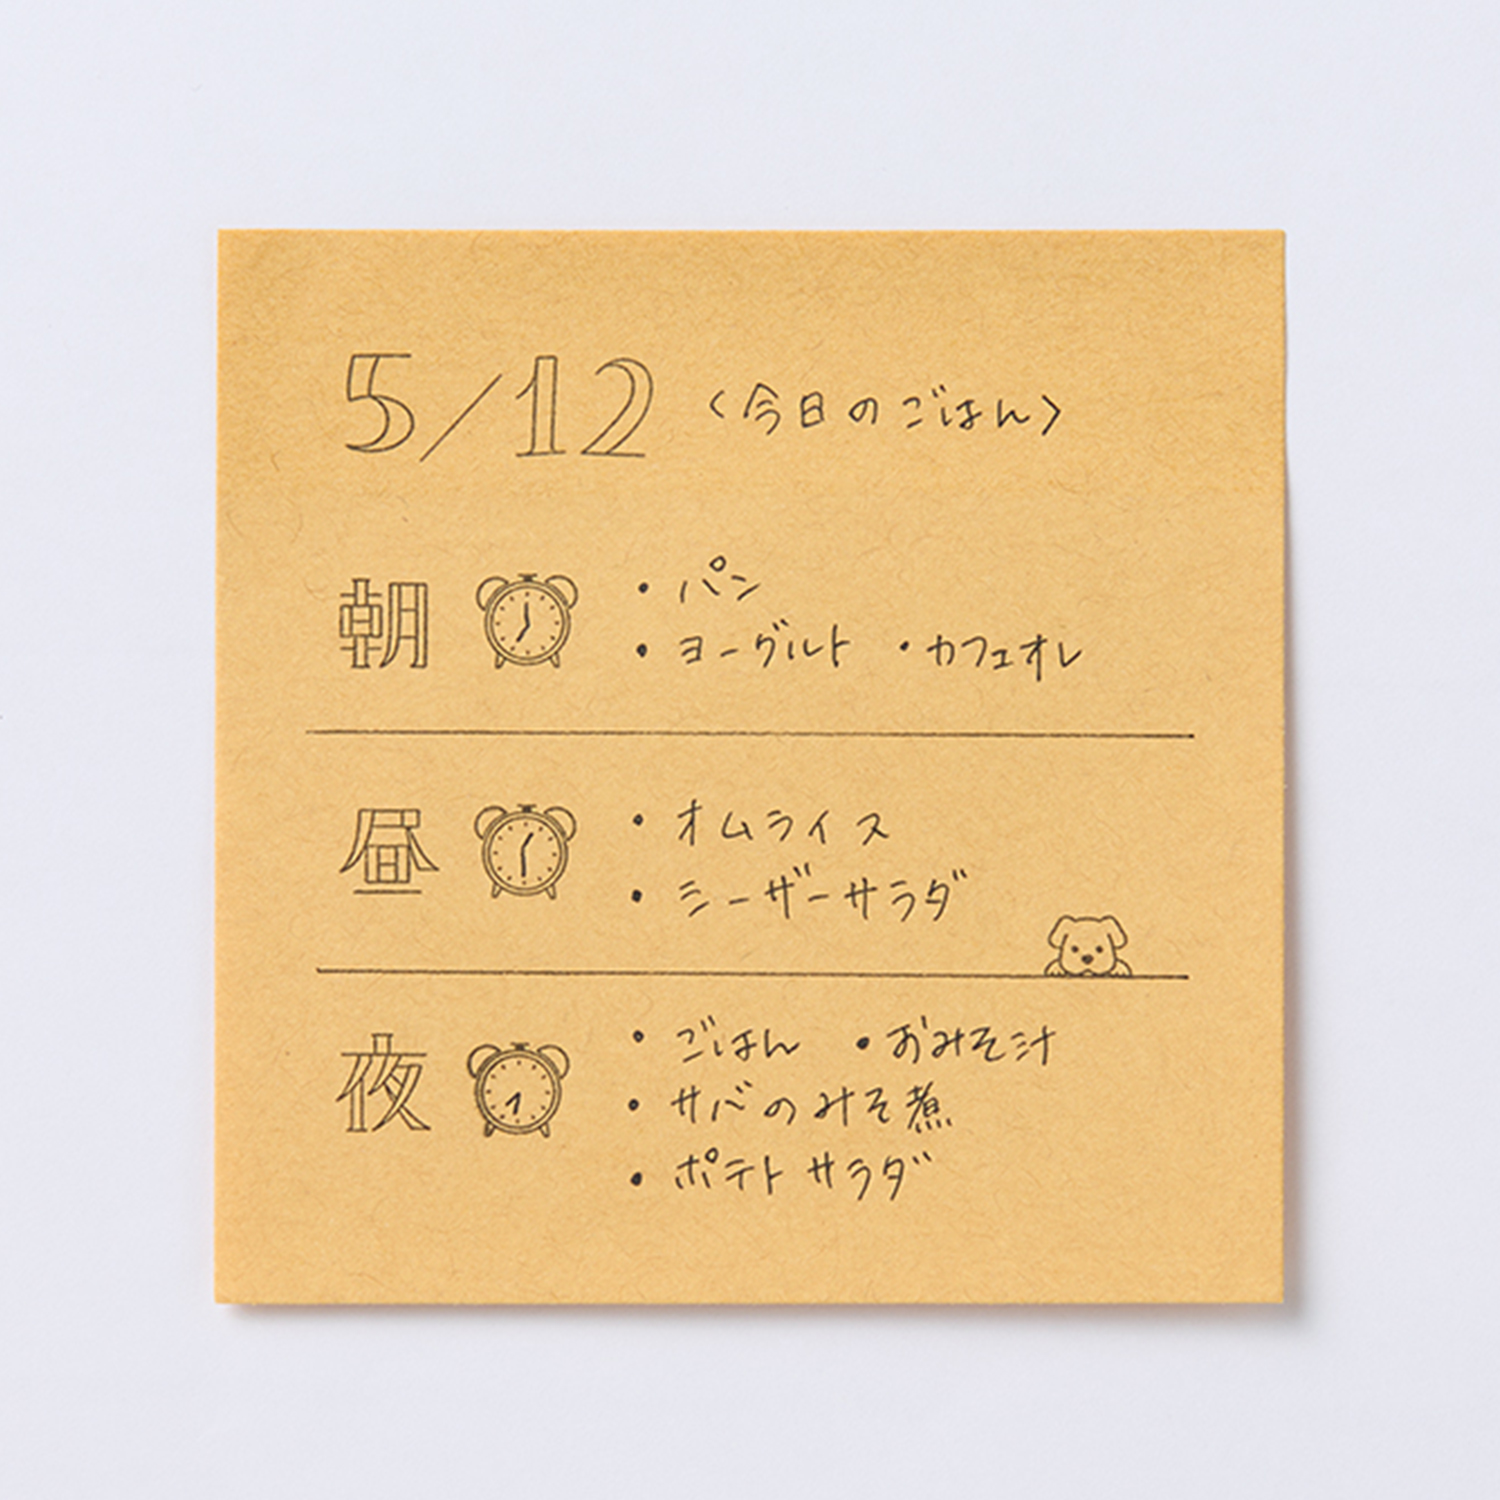 5/12 〈今日のごはん〉
朝
・パン
・ヨーグルト ・カフェオレ
昼
・オムライス
・シーザーサラダ
夜
・ごはん ・おみそ汁
・サバのみそ煮
・ポテトサラダ